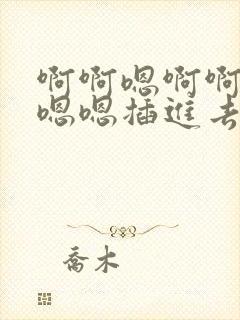 啊啊嗯啊啊
嗯嗯插進去
喬木